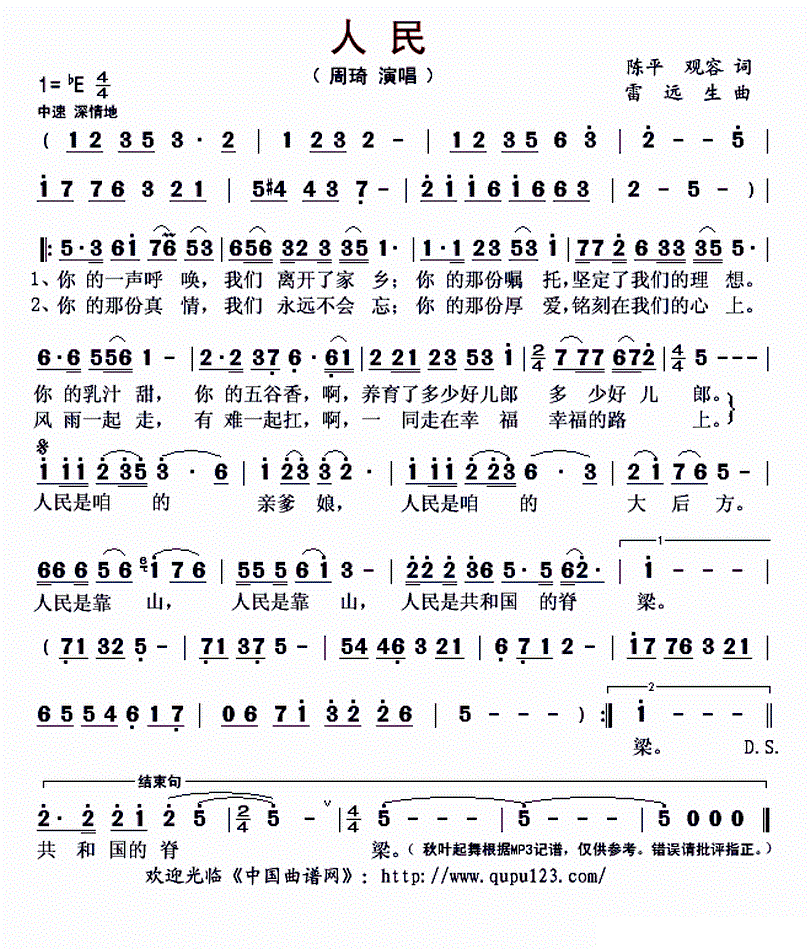 人民
（周琦 演唱）
陈平 观容 词
雷远生 曲
1=♭E 4/4
中速 深情地
( 1 2 3 5 3 · 2 | 1 2 3 2 - | 1 2 3 5 6 3 | 2 - - 5 |
1 7 7 6 3 2 1 | 5 #4 4 3 7 - | 2 1 1 6 1 6 6 3 | 2 - 5 - ) |
‖: 5 · 3 6 1 7 6 5 3 | 6 5 6 3 2 3 3 5 1 · | 1 · 1 2 3 5 3 1 | 7 7 2 6 3 3 3 5 5 · |
1、你 的一声呼 唤，我们 离开了家 乡；你 的那份嘱 托,坚定了我们的理 想。
2、你 的那份真 情，我们 永远不会 忘；你 的那份厚 爱,铭刻在我们的心 上。
6 · 6 5 5 6 1 - | 2 · 2 3 7 6 · 6 1 | 2 2 1 2 3 5 3 1 | 2/4 7 7 7 6 7 2 | 4/4 5 - - - |
你 的乳汁 甜， 你 的五谷香，啊，养育了多少好儿郎 多 少好 儿 郎。
风 雨一起 走， 有 难一起扛，啊，一 同走在幸 福 幸福的路 上。
1 1 1 2 3 5 3 · 6 | 1 2 3 3 2 · | 1 1 1 2 2 3 6 · 3 | 2 1 7 6 5 - |
人民是咱 的 亲爹 娘， 人民是咱 的 大 后 方。
6 6 6 5 6 6 1 7 6 | 5 5 5 6 1 3 - | 2 2 2 3 6 5 · 5 6 2 · | 1 1 - |
人民是靠 山， 人民是靠 山， 人民是共和国 的脊 梁。
( 7 1 3 2 5 - | 7 1 3 7 5 - | 5 4 4 6 3 2 1 | 6 7 1 2 - | 1 7 7 6 3 2 1 |
6 5 5 4 6 1 7 | 0 6 7 1 3 2 2 6 | 5 - - - ) :‖ 2 1 - - - ‖
梁。 D.S.
结束句
2 · 2 2 1 2 5 | 2/4 5 - ∨ | 4/4 5 - - - | 5 - - - | 5 0 0 0 ‖
共 和 国的 脊 梁。（秋叶起舞根据MP3记谱，仅供参考。错误请批评指正。）
欢迎光临《中国曲谱网》：http://www.qupu123.com/